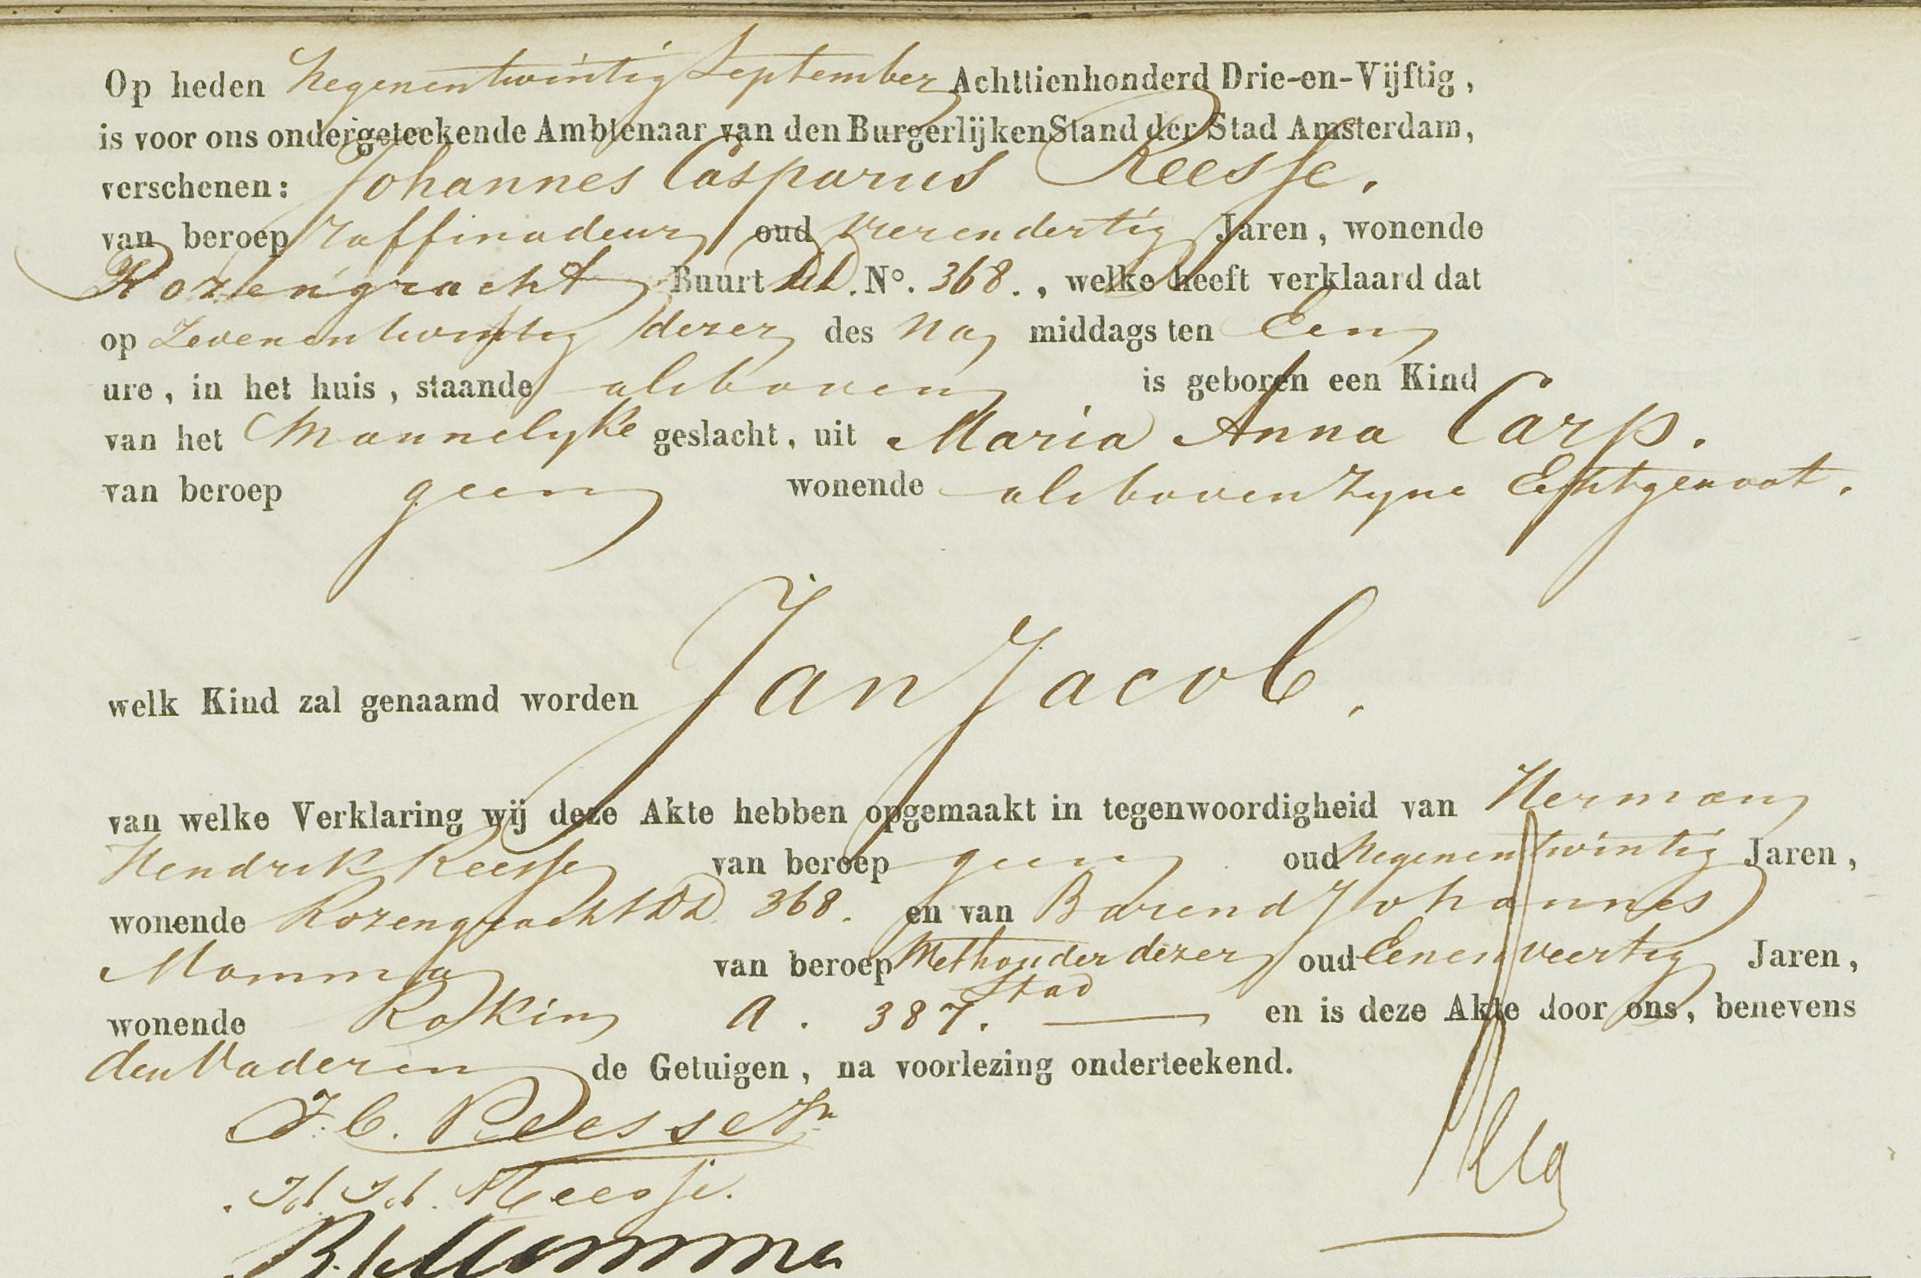 Op heden Negenentwintig September Achttienhonderd Drie-en-Vijftig,
is voor ons ondergeteekende Ambtenaar van den Burgerlijken Stand der Stad Amsterdam,
verschenen: Johannes Casparus Reesse.
van beroep raffinadeur oud vierendertig Jaren, wonende
Rozengracht Buurt DD. No. 368., welke heeft verklaard dat
op Zevenentwintig dezer des Na middags ten Een
ure, in het huis, staande als boven is geboren een Kind
van het Mannelyke geslacht, uit Maria Anna Carp.
van beroep geen wonende als boven zyne Echtgenoot.
welk Kind zal genaamd worden Jan Jacob.
van welke Verklaring wij deze Akte hebben opgemaakt in tegenwoordigheid van Herman
Hendrik Reesse van beroep geen oud Negenentwintig Jaren,
wonende Rozengracht DD 368. en van Barend Johannes
Momma van beroep Wethouder dezer Stad oud Eenenveertig Jaren,
wonende Rokin A. 387. en is deze Akte door ons, benevens
den Vader en de Getuigen, na voorlezing onderteekend.
J. C. Reesse Jr
H. H. Reesse.
B. J. Momma